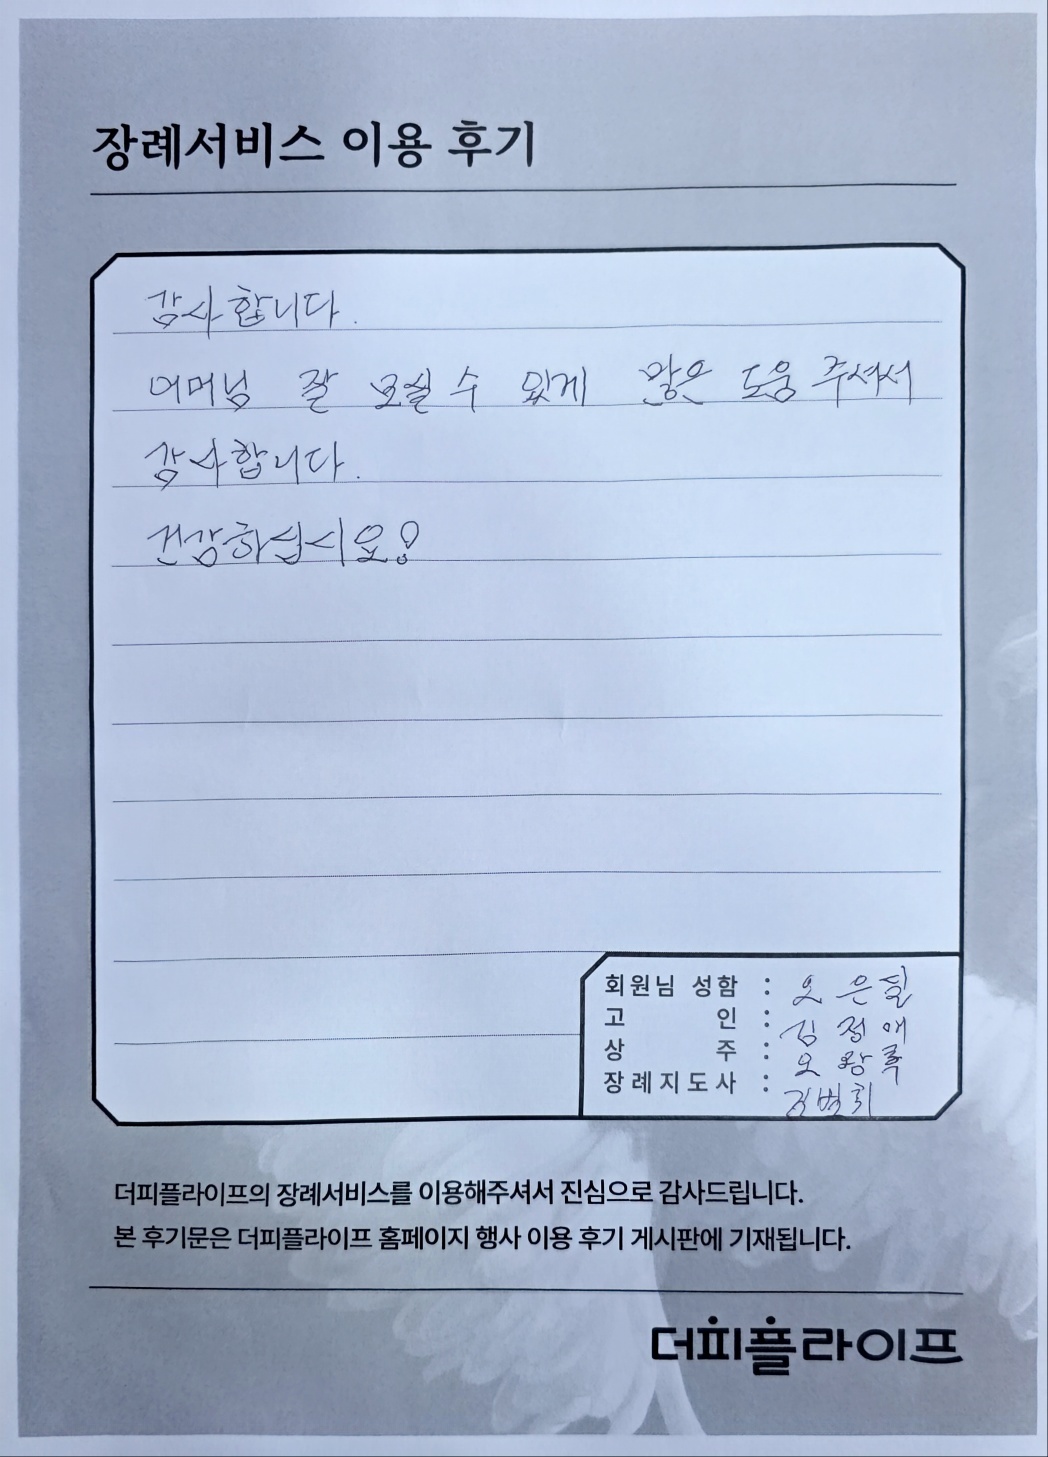 장례서비스 이용 후기
감사합니다.
어머님 잘 모실 수 있게 많은 도움 주셔서
감사합니다.
건강하십시요!
회원님 성함 : 오 은
고 인 : 김 정 애
상 주 : 오
장례지도사 :
더피플라이프의 장례서비스를 이용해주셔서 진심으로 감사드립니다.
본 후기문은 더피플라이프 홈페이지 행사 이용 후기 게시판에 기재됩니다.
더피플라이프